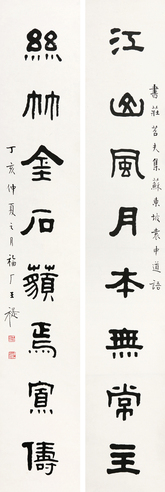 書莊苕夫集蘇東坡袁中道語
江山風月本無常主
絲竹金石藐焉寡儔
丁亥仲夏之月福厂王禔